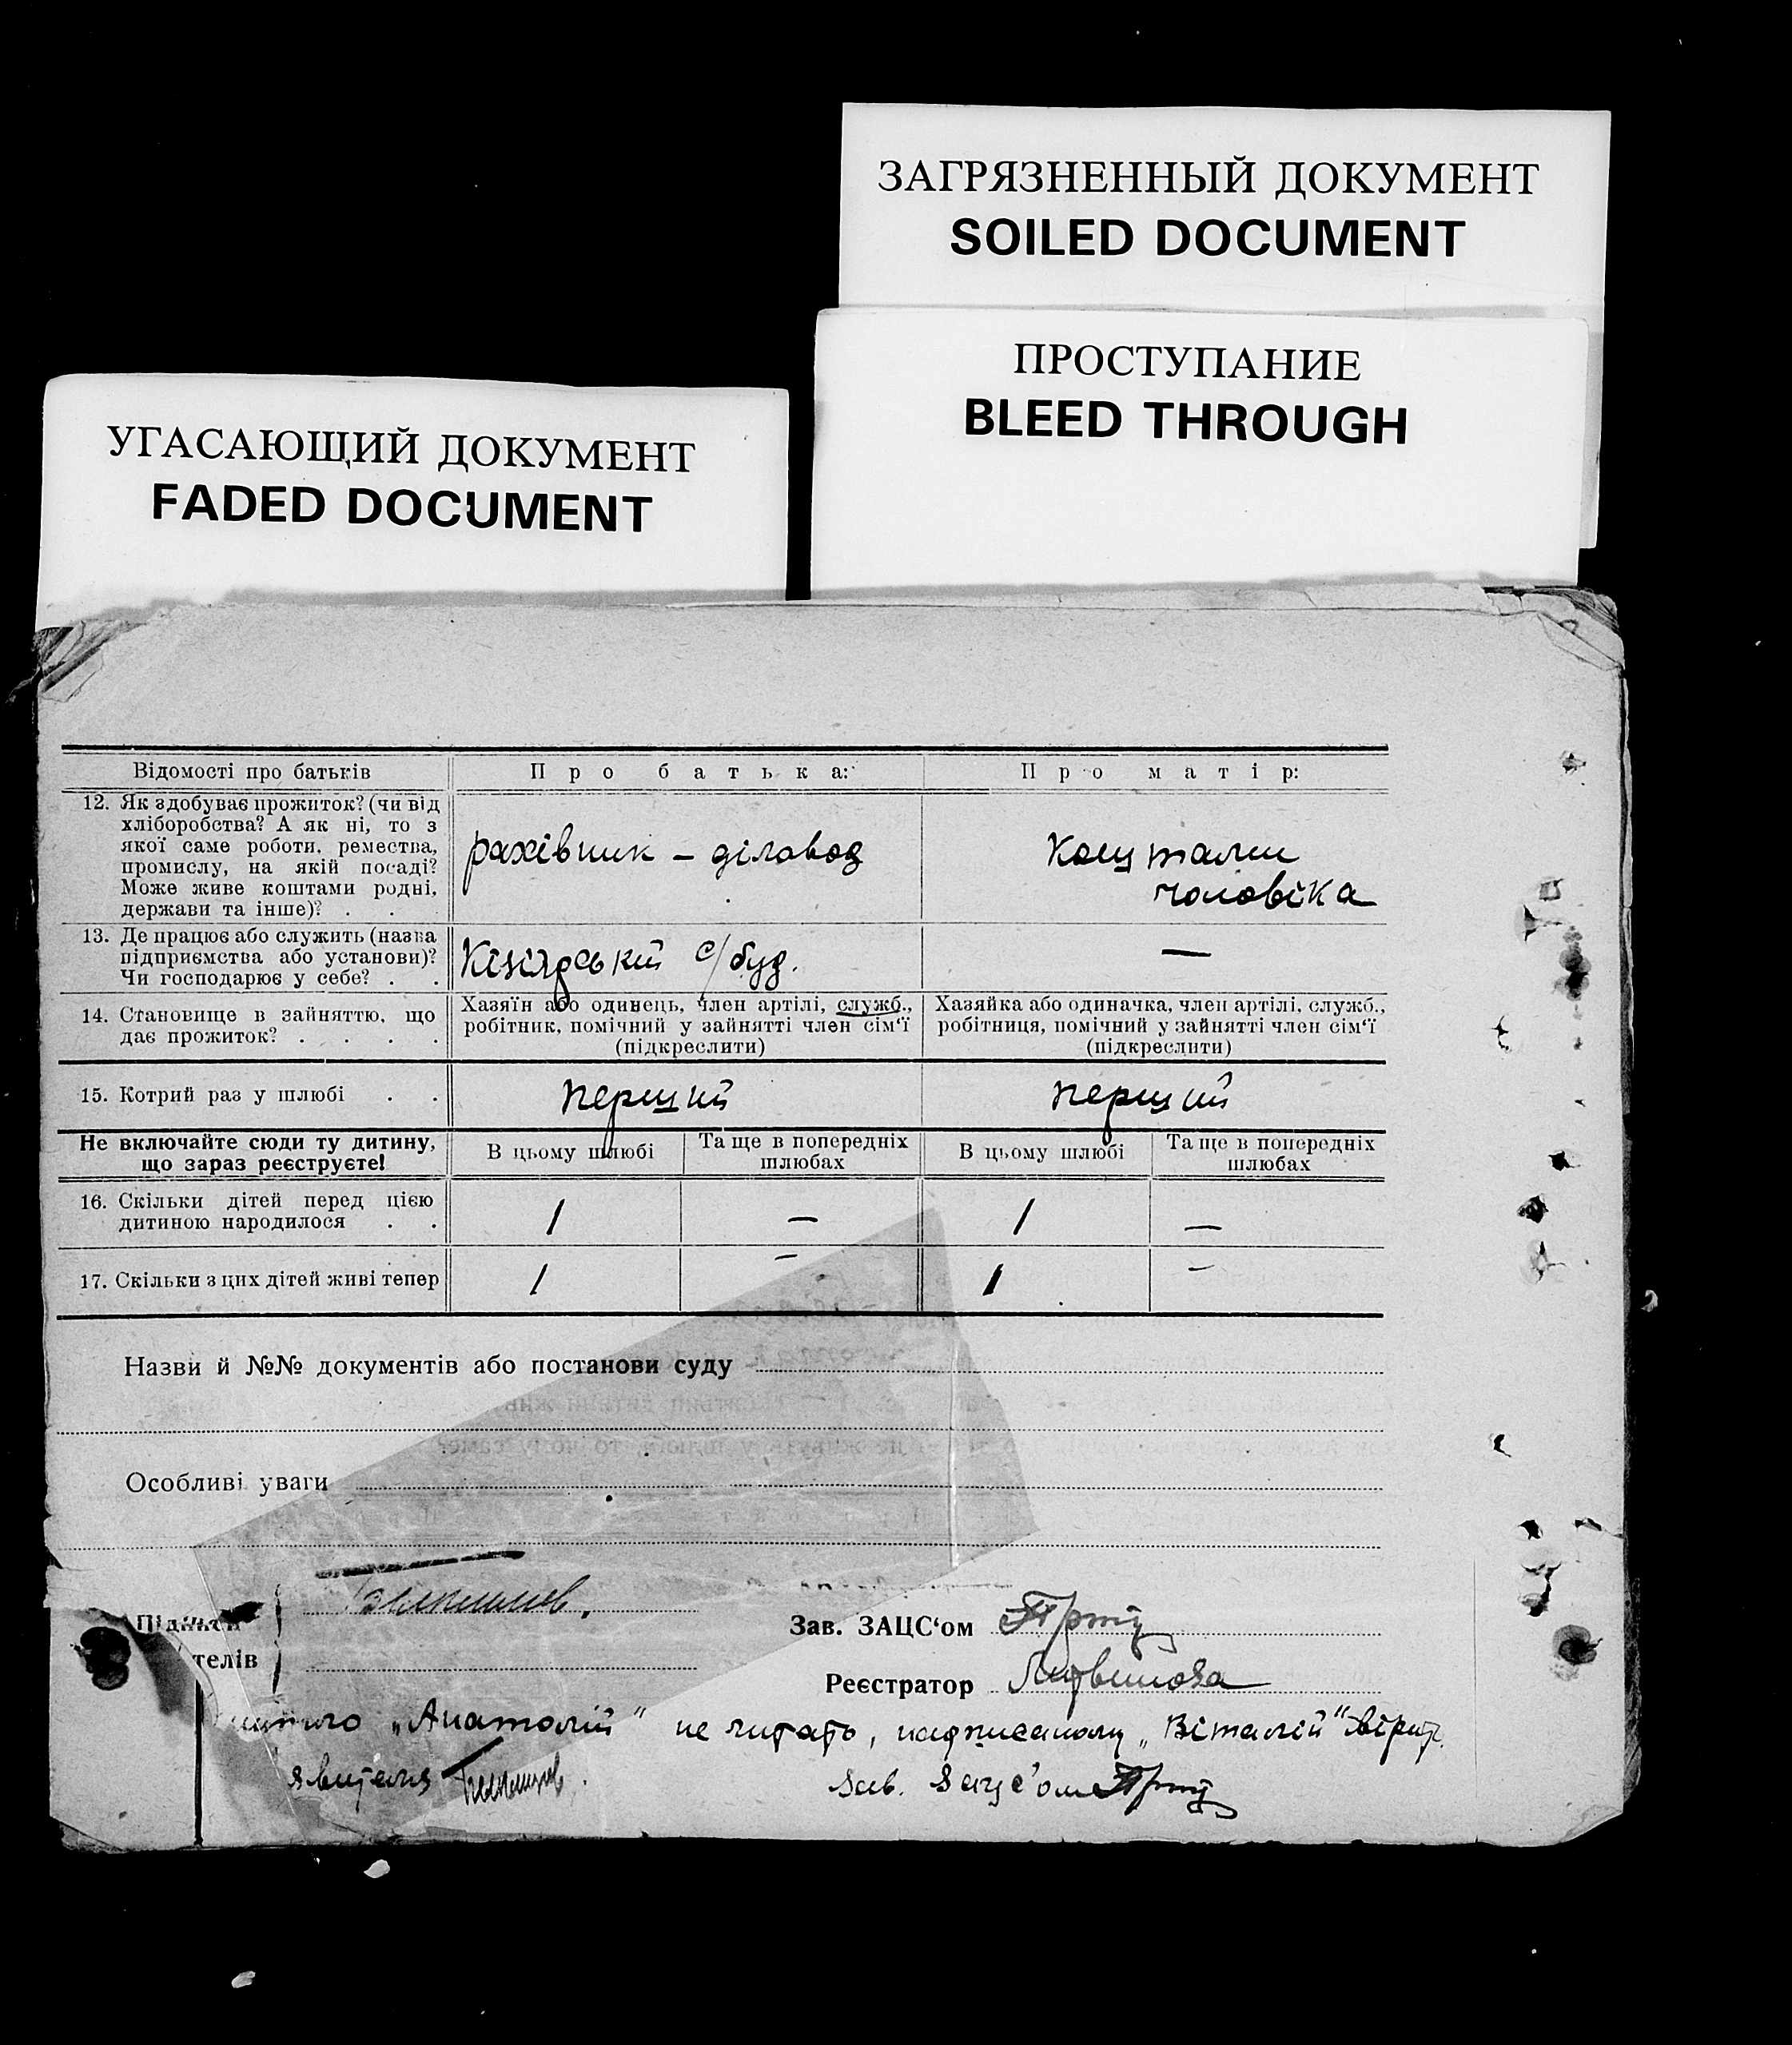 ЗАГРЯЗНЕННЫЙ ДОКУМЕНТ
SOILED DOCUMENT
ПРОСТУПАНИЕ
BLEED THROUGH
УГАСАЮЩИЙ ДОКУМЕНТ
FADED DOCUMENT
Відомості про батьків
Про батька:
Про матір:
12. Як здобуває прожиток? (чи від
хліборобства? А як ні, то з
якої саме роботи, ремества,
промислу, на якій посаді?
Може живе коштами родні,
держави та інше)? . .
рахівник – діловод
коштами
чоловіка
13. Де працює або служить (назва
підприємства або установи)?
Чи господарює у себе? . .
с/буд.
—
14. Становище в зайняттю, що
дає прожиток? . . . .
Хазяїн або одинець, член артілі, служб.,
робітник, помічний у зайнятті член сім'ї
(підкреслити)
Хазяйка або одиначка, член артілі, служб.,
робітниця, помічний у зайнятті член сім'ї
(підкреслити)
15. Котрий раз у шлюбі . .
перший
перший
Не включайте сюди ту дитину,
що зараз реєструєте!
В цьому шлюбі
Та ще в попередніх
шлюбах
В цьому шлюбі
Та ще в попередніх
шлюбах
16. Скільки дітей перед цією
дитиною народилося . .
1
—
1
—
17. Скільки з цих дітей живі тепер
1
—
1
—
Назви й №№ документів або постанови суду
Особливі уваги
Підписи
телів
Зав. ЗАЦС'ом
Реєстратор Литвинова
„Анатолій" не читать, надписаному „Віталій" вірить.
явителя
Зав. Зацс'ом